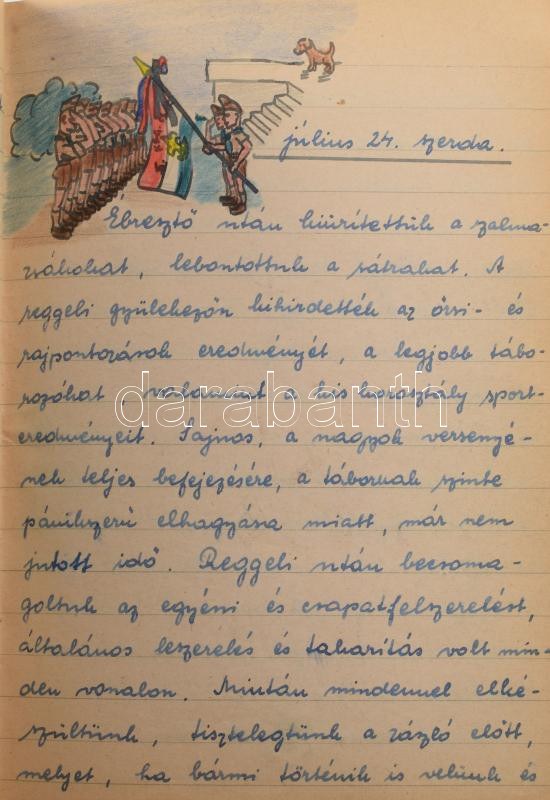 július 24. szerda.
Ébresztő után kiürítettük a szalma-
zsákokat, lebontottuk a sátrakat. A
reggeli gyülekezőn kihirdették az őrsi- és
rajpontozások eredményét, a legjobb tábo-
rozókat valamint a kis korosztály sport-
eredményeit. Sajnos, a nagyok versenyé-
nek teljes befejezésére, a tábornak szinte
pánikszerű elhagyása miatt, már nem
jutott idő. Reggeli után becsoma-
goltuk az egyéni és csapatfelszerelést,
általános leszerelés és takarítás volt min-
den vonalon. Miután mindennel elké-
szültünk, tisztelegtünk a zászló előtt,
melyet, ha bármi történik is velünk és
darabanth